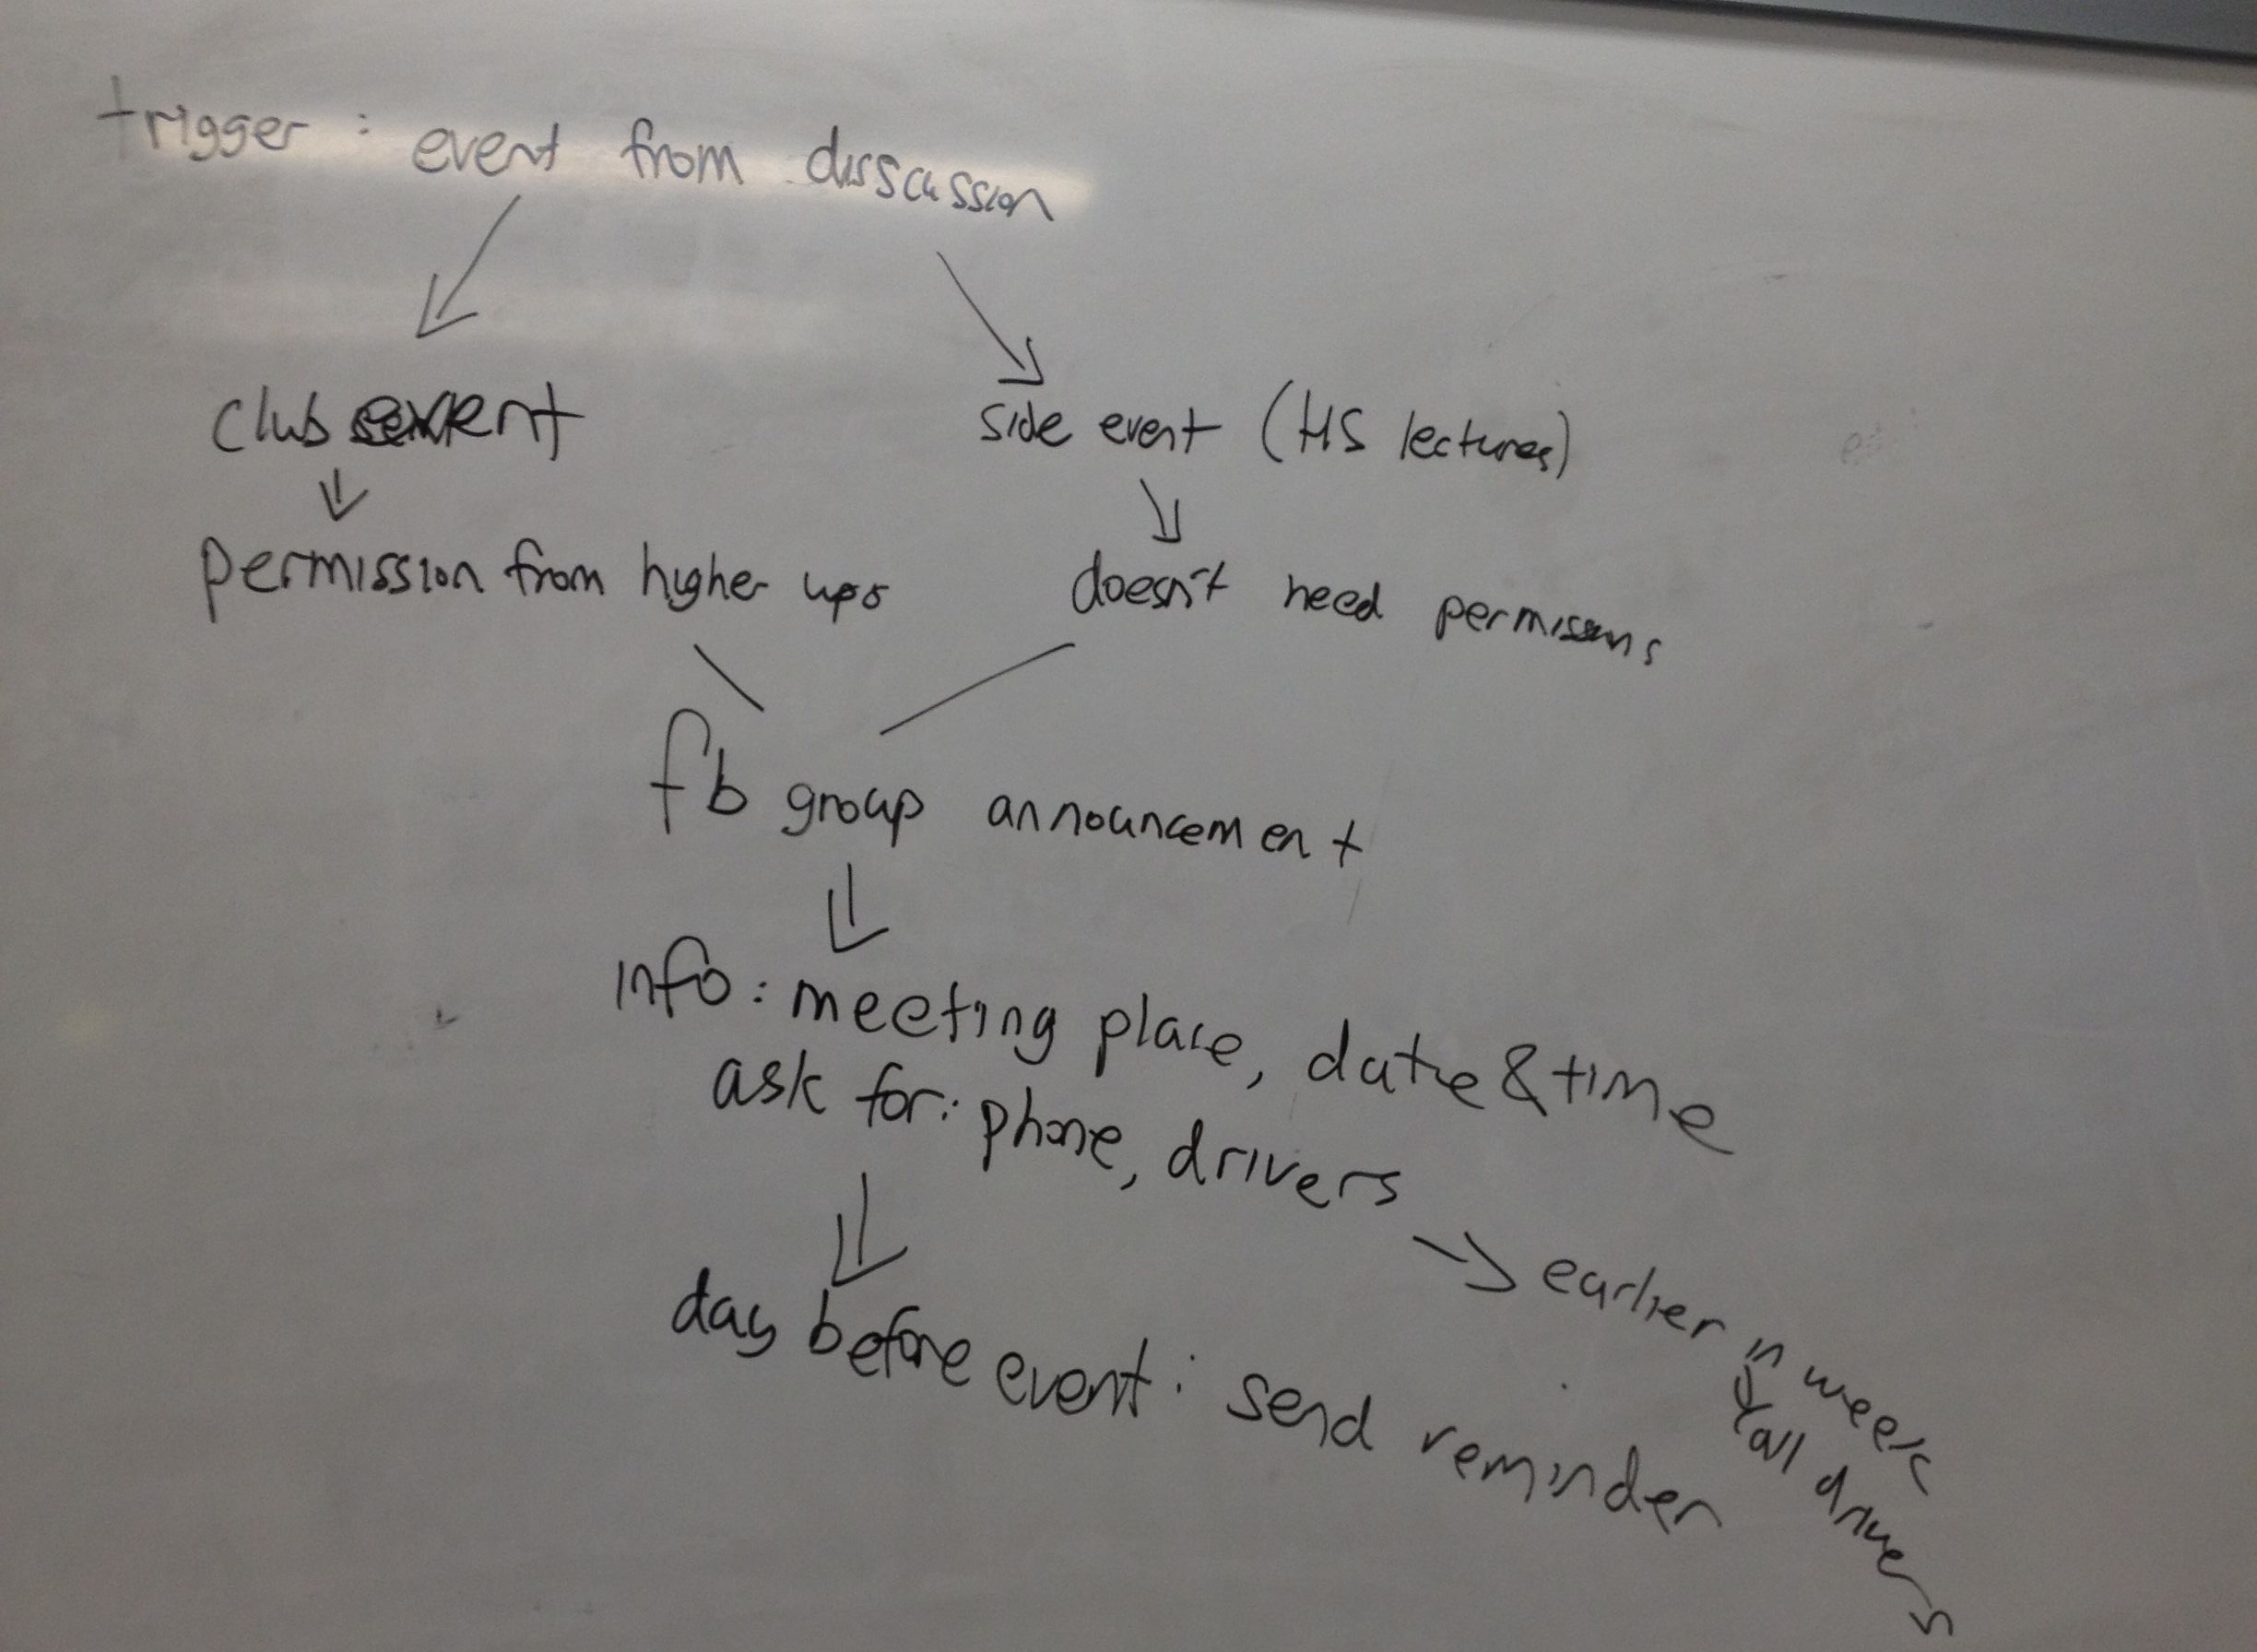 trigger : event from disscussion
club event
side event (HS lectures)
permission from higher ups
doesn't need permissions
fb group announcement
info : meeting place, date & time
ask for: phone, drivers
earlier in week
call drivers
day before event : send reminder